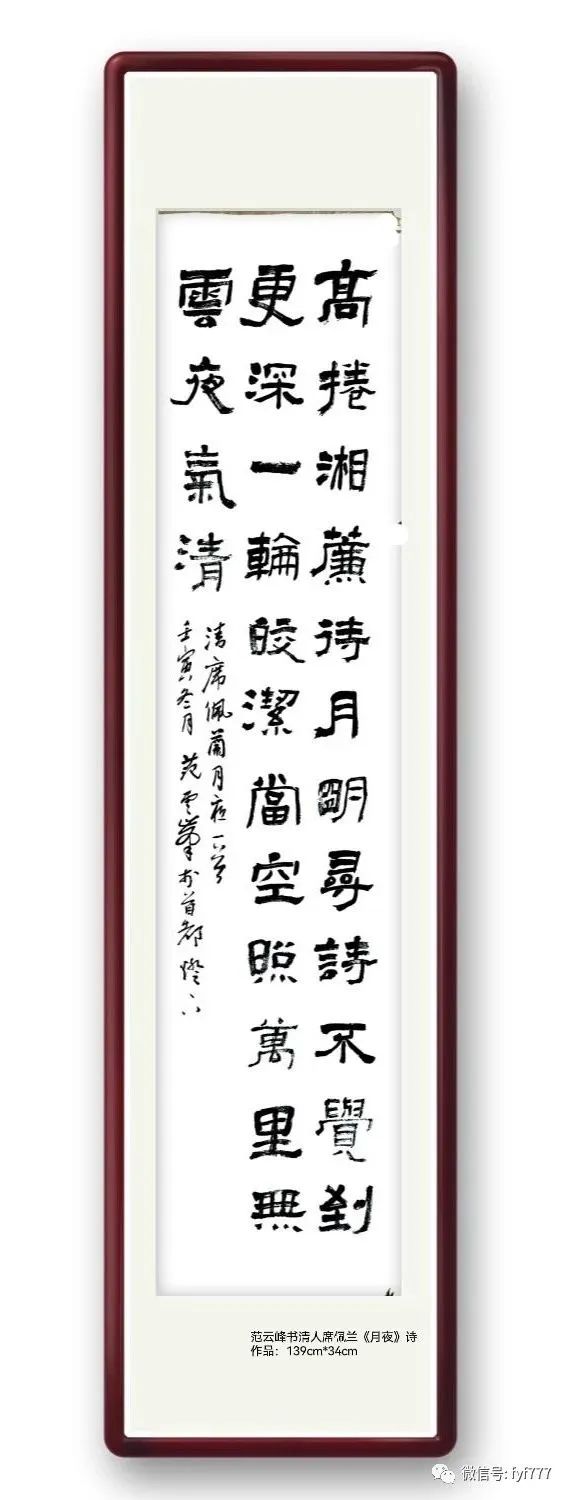 高捲湘薕待月明尋詩不覺到
更深一輪皎潔當空照萬里無
雲夜氣清
清席佩蘭月夜一首
壬寅冬月范雲峯於首都燈下
范云峰书清人席佩兰《月夜》诗
作品：139cm*34cm
微信号: fyf777